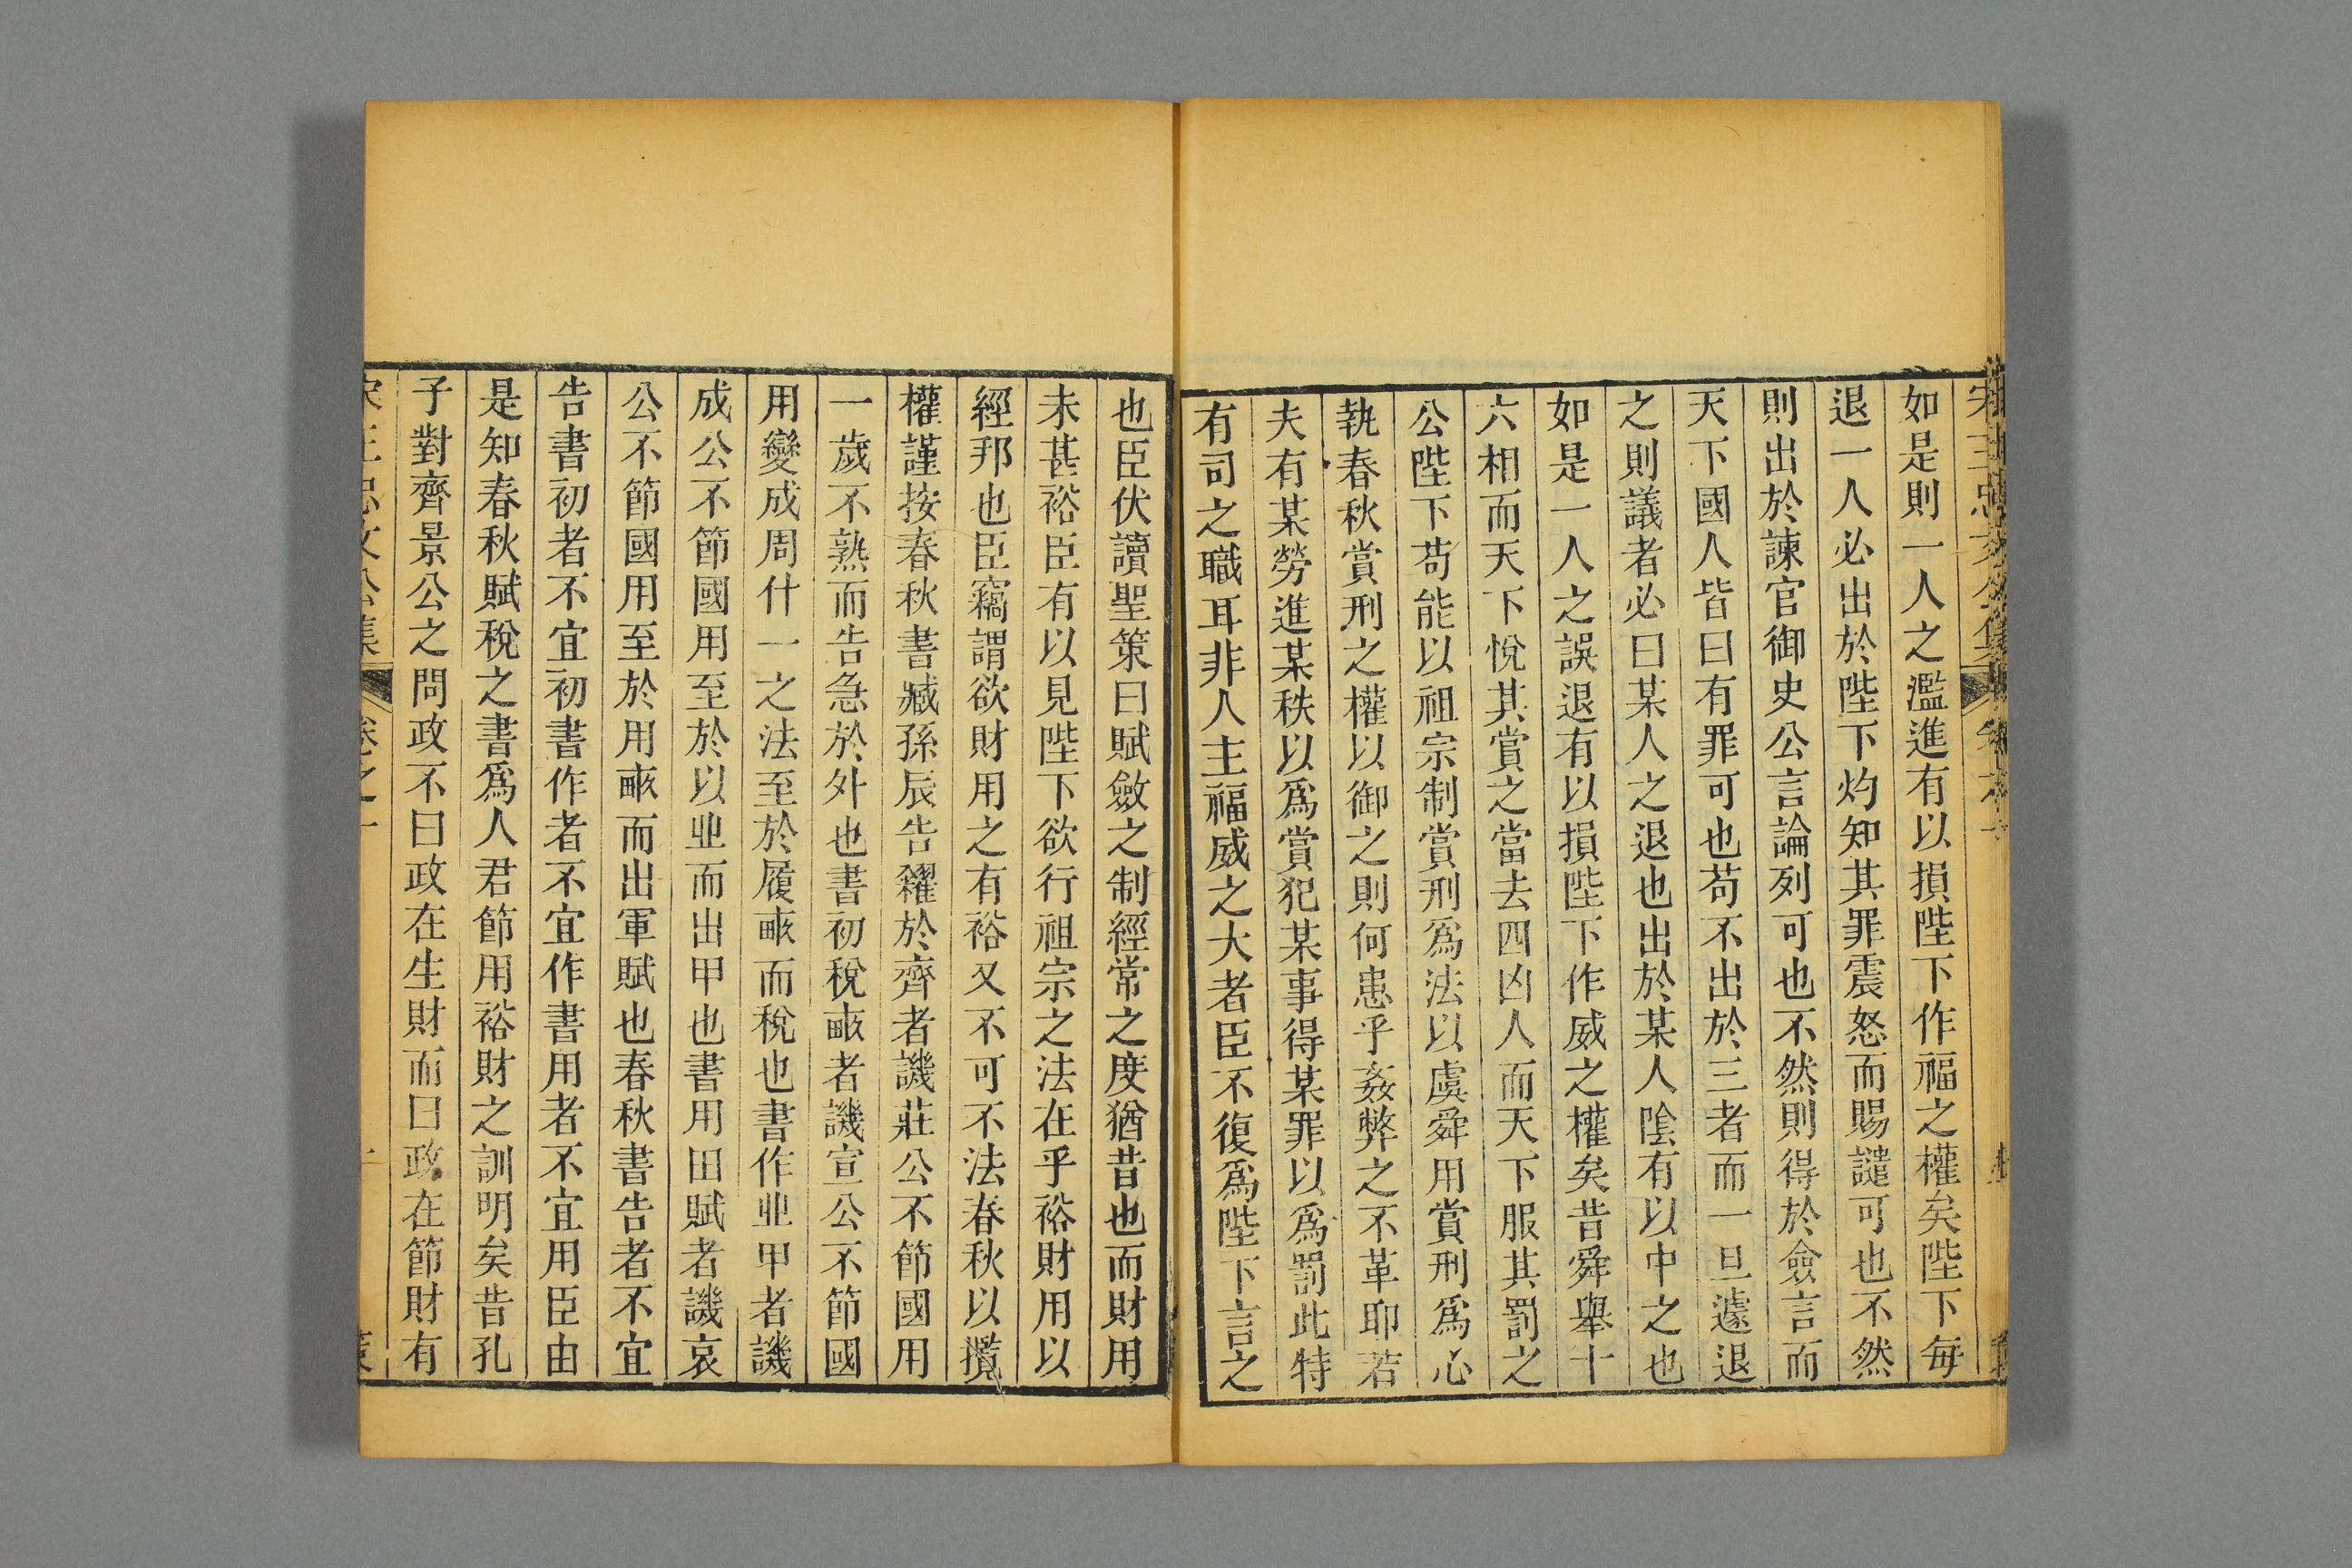 如是則一人之濫進有以損陛下作福之權矣陛下每
退一人必出於陛下灼知其罪震怒而賜譴可也不然
則出於諫官御史公言論列可也不然則得於僉言而
天下國人皆曰有罪可也苟不出於三者而一旦遽退
之則議者必曰某人之退也出於某人陰有以中之也
如是一人之誤退有以損陛下作威之權矣昔舜舉十
六相而天下悅其賞之當去四凶人而天下服其罰之
公陛下苟能以祖宗制賞刑爲法以虞舜用賞刑爲心
執春秋賞刑之權以御之則何患乎姦弊之不革耶若
夫有某勞進某秩以爲賞犯某事得某罪以爲罰此特
有司之職耳非人主福威之大者臣不復爲陛下言之
也臣伏讀聖策曰賦斂之制經常之度猶昔也而財用
未甚裕臣有以見陛下欲行祖宗之法在乎裕財用以
經邦也臣竊謂欲財用之有裕又不可不法春秋以攬
權謹按春秋書臧孫辰告糴於齊者譏莊公不節國用
一歲不熟而告急於外也書初稅畝者譏宣公不節國
用變成周什一之法至於履畝而稅也書作丠甲者譏
成公不節國用至於以丠而出甲也書用田賦者譏哀
公不節國用至於用畝而出軍賦也春秋書告者不宜
告書初者不宜初書作者不宜作書用者不宜用臣由
是知春秋賦稅之書爲人君節用裕財之訓明矣昔孔
子對齊景公之問政不曰政在生財而曰政在節財有
宋王忠文公集 卷之一